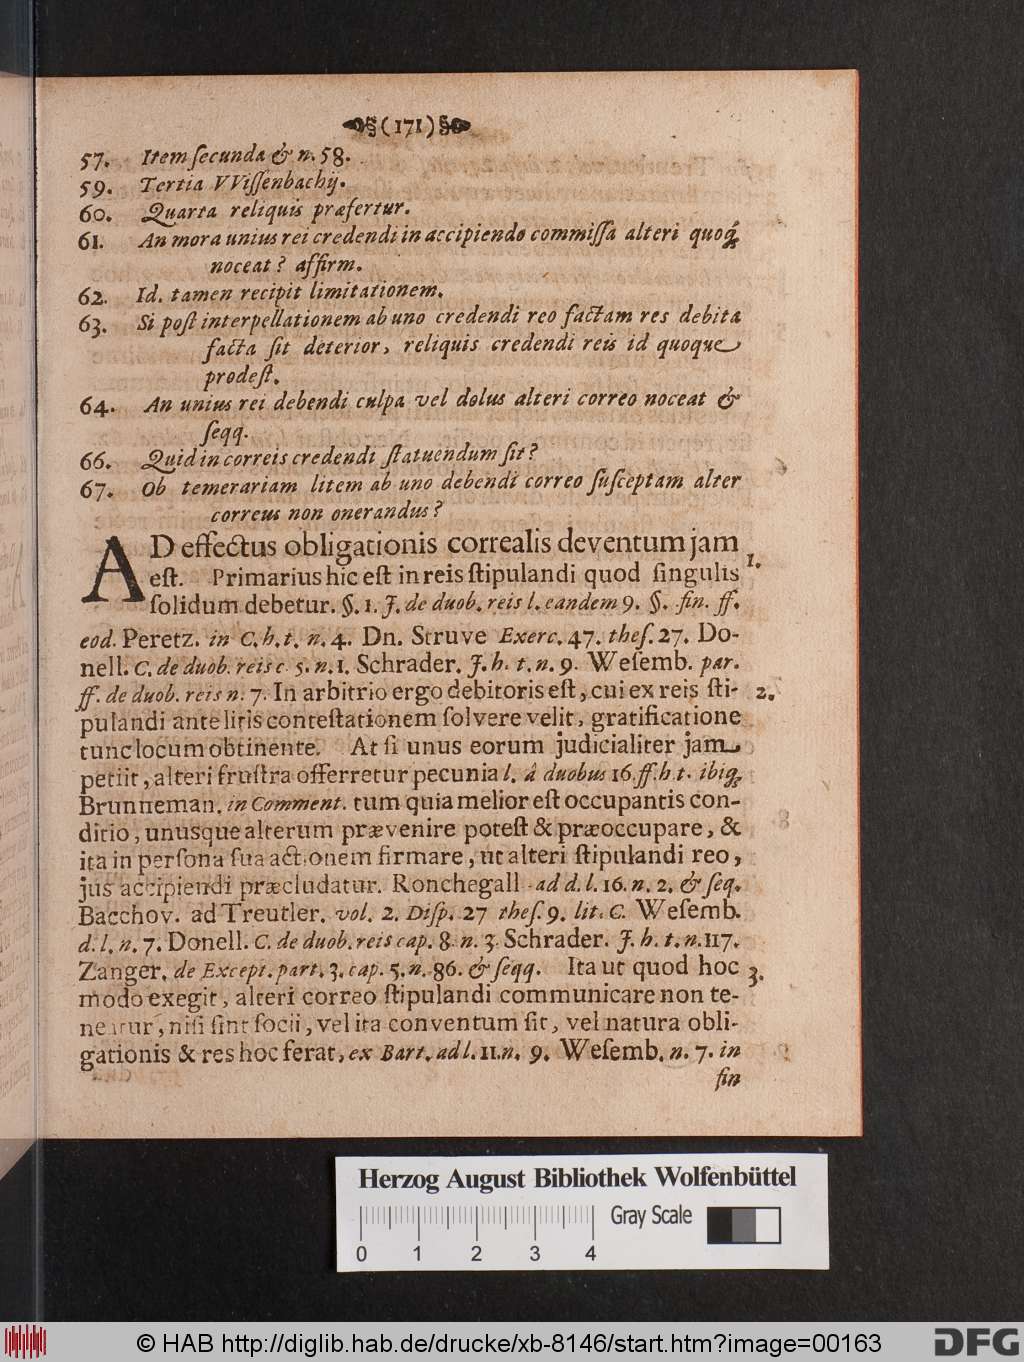 (171)
57. Item secunda & n. 58.
59. Tertia VVissenbachij.
60. Quarta reliquis præfertur.
61. An mora unius rei credendi in accipiendo commissa alteri quoq́;
noceat? affirm.
62. Id. tamen recipit limitationem.
63. Si post interpellationem ab uno credendi reo factam res debita
facta sit deterior, reliquis credendi reis id quoque
prodest.
64. An unius rei debendi culpa vel dolus alteri correo noceat &
seqq.
66. Quid in correis credendi statuendum sit?
67. Ob temerariam litem ab uno debendi correo susceptam alter
correus non onerandus?
AD effectus obligationis correalis deventum jam
est. Primarius hic est in reis stipulandi quod singulis 1.
solidum debetur. §. 1. J. de duob. reis l. eandem 9. §. fin. ff.
eod. Peretz. in C. h. t. n. 4. Dn. Struve Exerc. 47. thes. 27. Do-
nell. C. de duob. reis c. 5. n. 1. Schrader. J. h. t. n. 9. Wesemb. par.
ff. de duob. reis n. 7. In arbitrio ergo debitoris est, cui ex reis sti- 2.
pulandi ante litis contestationem solvere velit, gratificatione
tunc locum obtinente. At si unus eorum judicialiter jam
petiit, alteri frustra offerretur pecunia l. â duobus 16. ff. h. t. ibiq́;
Brunneman. in Comment. tum quia melior est occupantis con-
ditio, unusque alterum prævenire potest & præoccupare, &
ita in persona sua actionem firmare, ut alteri stipulandi reo,
jus accipiendi præcludatur. Ronchegall ad d. l. 16. n. 2. & seq.
Bacchov. ad Treutler. vol. 2. Disp. 27 thes. 9. lit. C. Wesemb.
d. l. n. 7. Donell. C. de duob. reis cap. 8. n. 3. Schrader. J. h. t. n. 117.
Zanger. de Except. part. 3. cap. 5. n. 86. & seqq. Ita ut quod hoc 3.
modo exegit, alteri correo stipulandi communicare non te-
neatur, nisi sint socii, vel ita conventum sit, vel natura obli-
gationis & res hoc ferat, ex Bart. ad l. 11. n. 9. Wesemb. n. 7. in
fin
Herzog August Bibliothek Wolfenbüttel
Gray Scale
0 1 2 3 4
© HAB http://diglib.hab.de/drucke/xb-8146/start.htm?image=00163
DFG